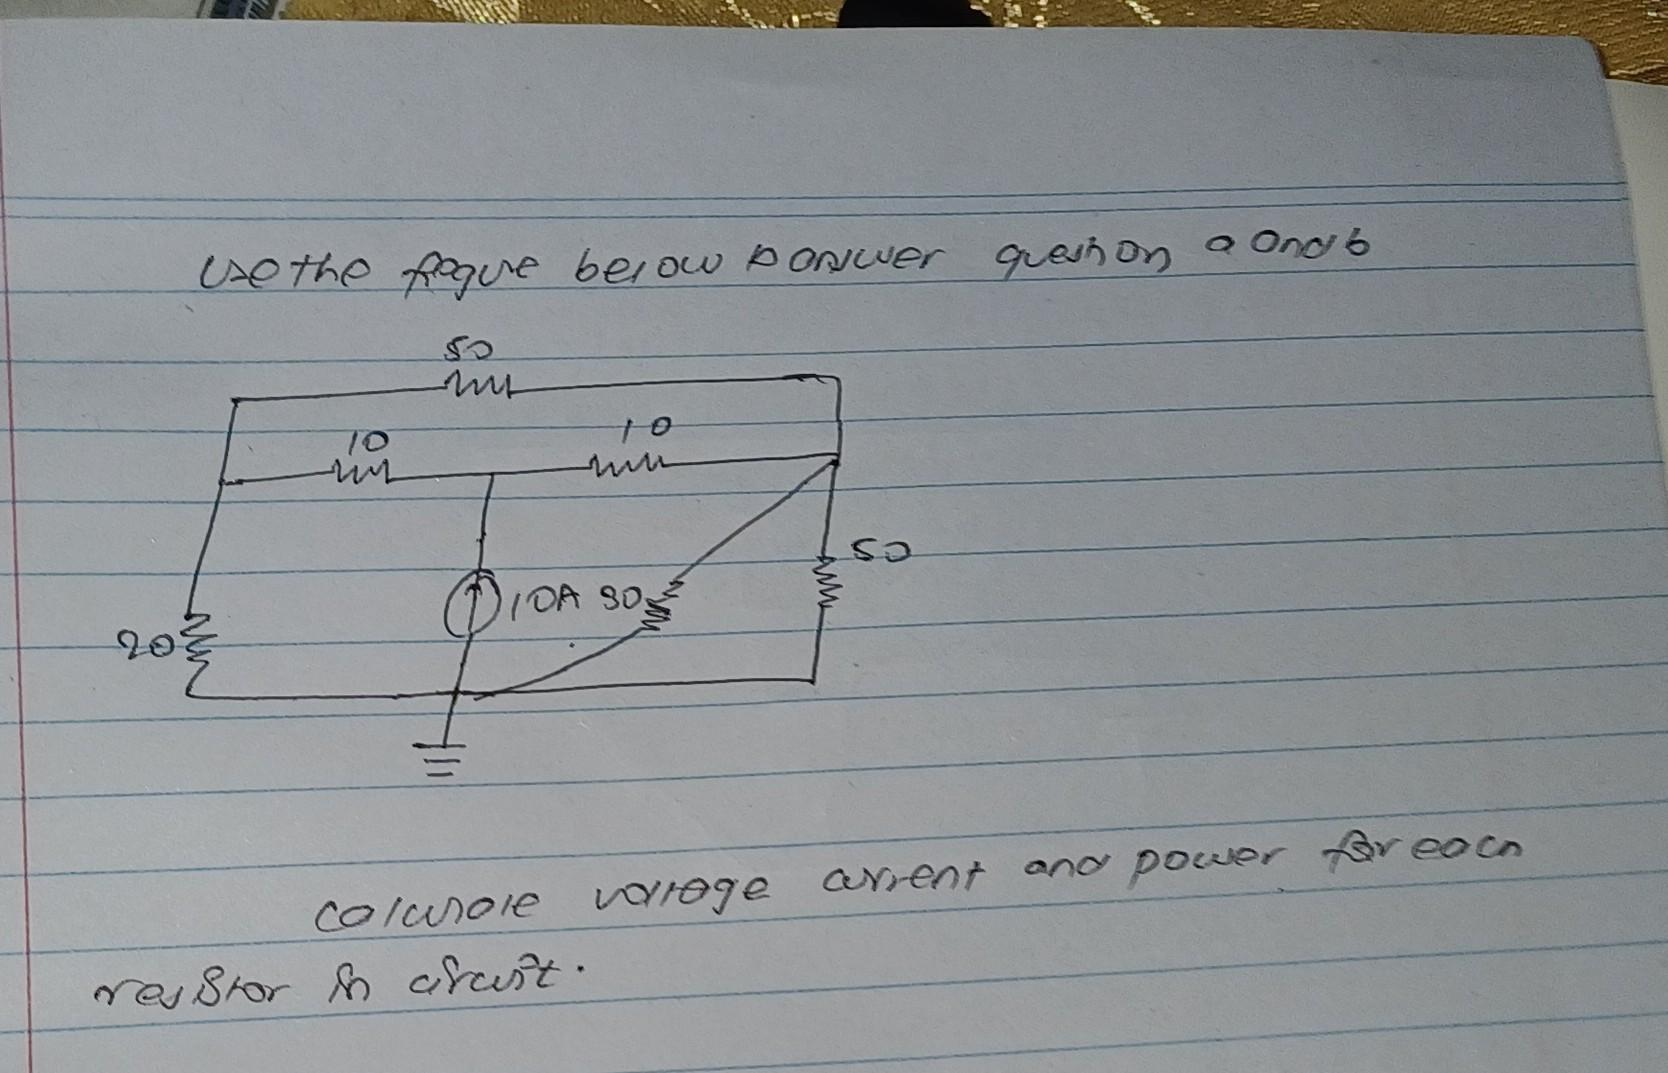 Use the fegure below to answer question a and b
50
10
10
50
10A
30
20
Calculate voltage current and power for each
resistor in circuit.